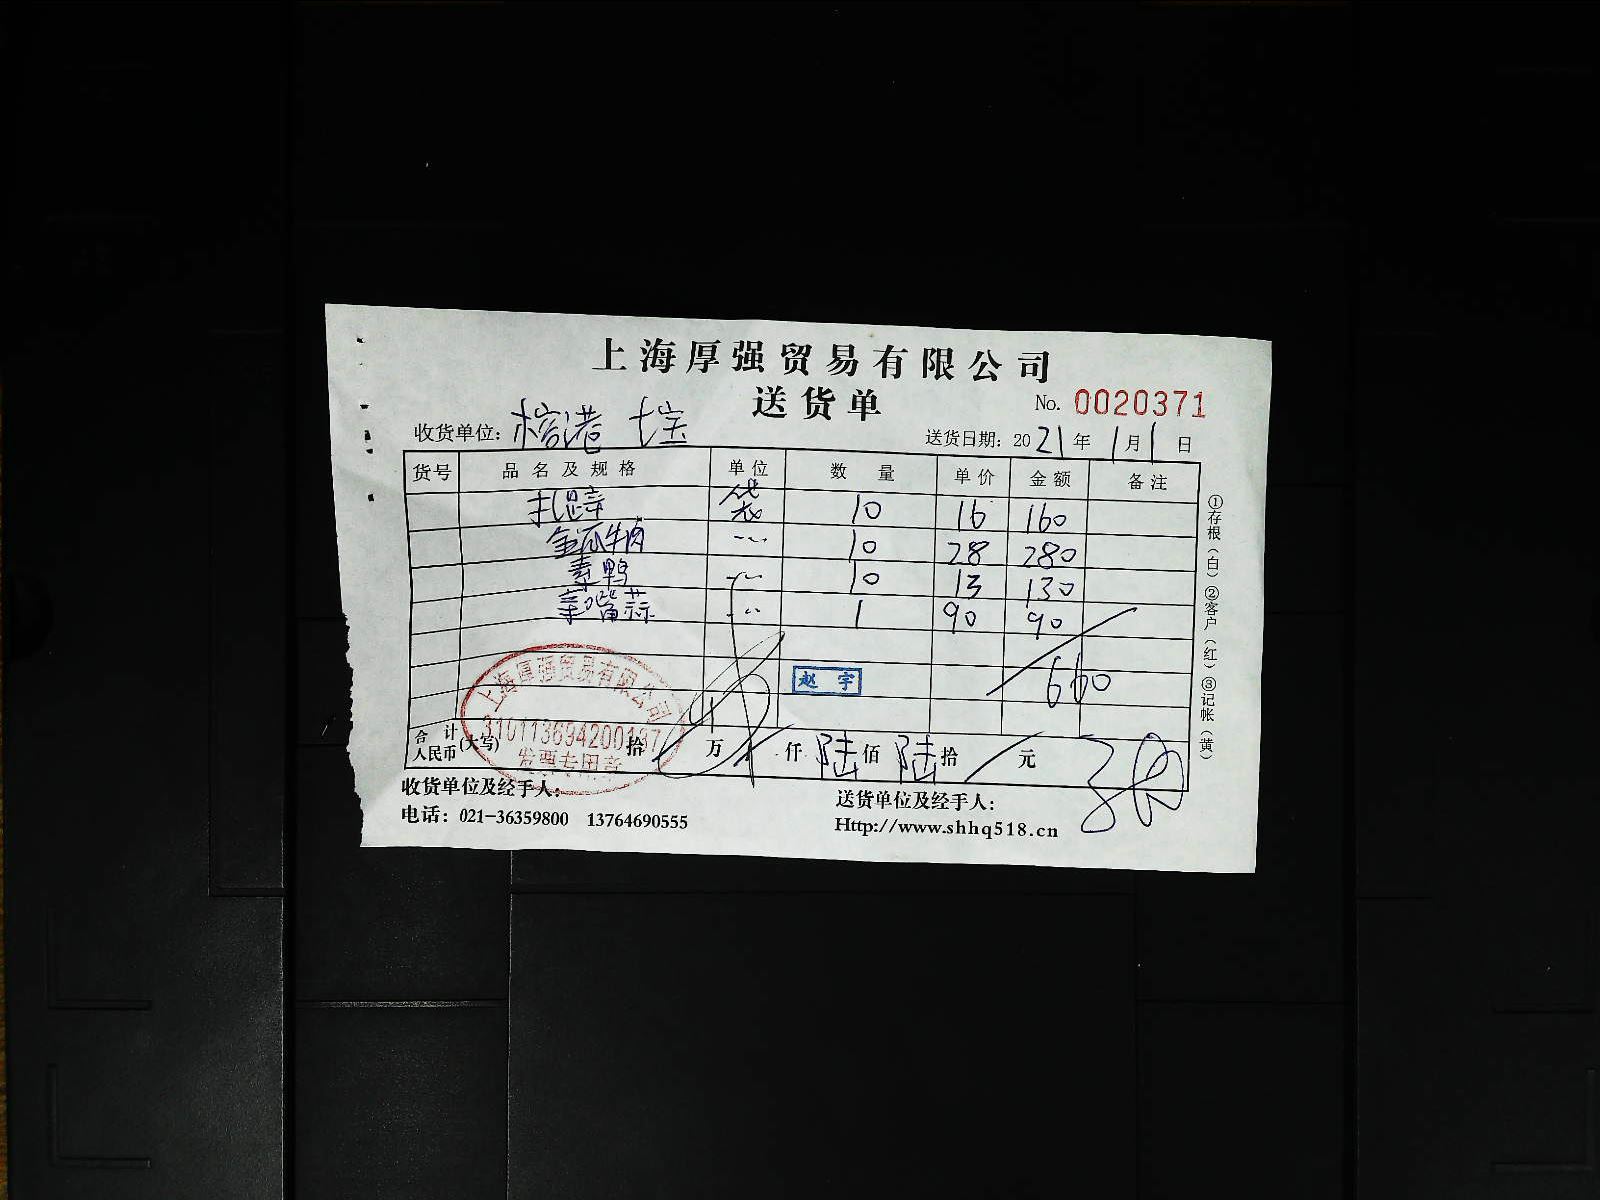 上海厚强贸易有限公司
送货单
No. 0020371
收货单位：榕港 七宝
送货日期：2021年1月1日
货号 品名及规格 单位 数量 单价 金额 备注
袋 10 16 160
金瓜牛肉 10 28 280
素鸭 10 13 130
蒜 1 90 90
660
赵宇
上海厚强贸易有限公司
发票专用章
合计人民币(大写) 拾 万 仟 陆佰 陆拾 元
收货单位及经手人：
送货单位及经手人：
电话：021-36359800 13764690555
Http://www.shhq518.cn
①存根（白）②客户（红）③记帐（黄）